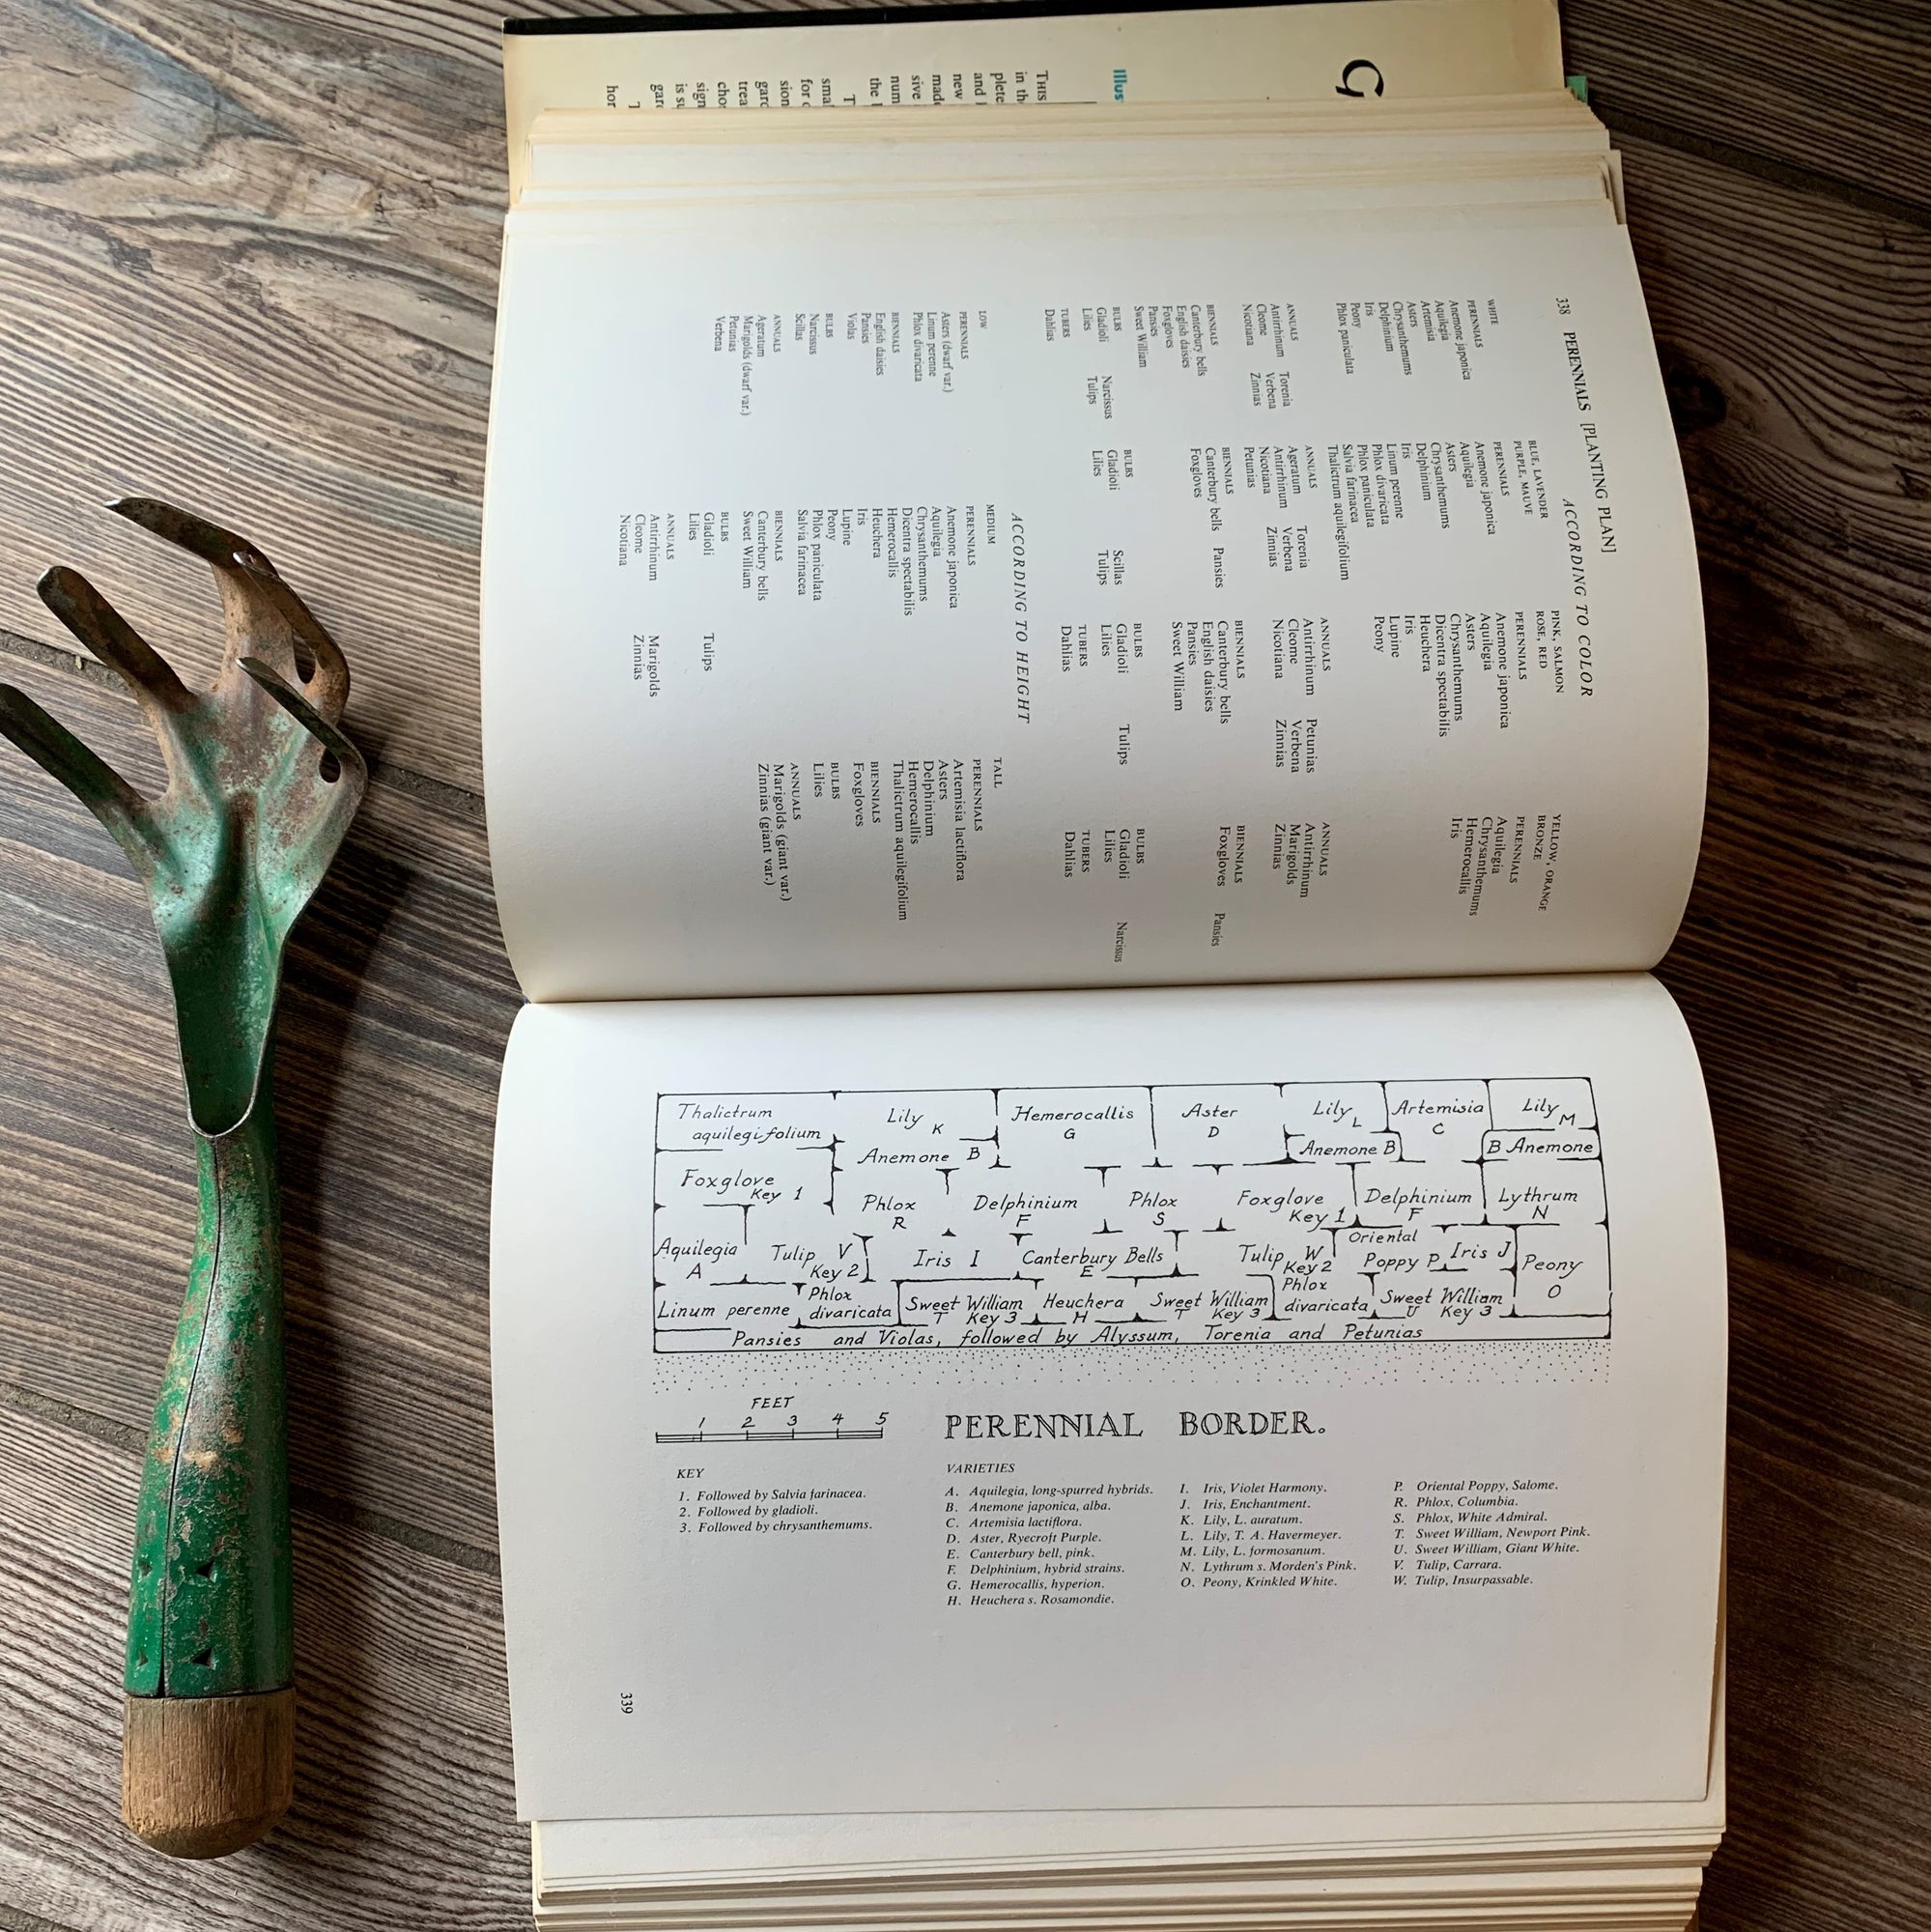 G
Illus
THIS
in th
plete
and
new
made
sive
num
the
T
smal
for
sion
gard
trea
choo
sign
is su
gard
T
hor
338 PERENNIALS [PLANTING PLAN]
ACCORDING TO COLOR
WHITE
PERENNIALS
Anemone japonica
Aquilegia
Artemisia
Asters
Chrysanthemums
Delphinium
Iris
Peony
Phlox paniculata
ANNUALS
Antirrhinum Torenia
Cleome Verbena
Nicotiana Zinnias
BIENNIALS
Canterbury bells
English daisies
Foxgloves
Pansies
Sweet William
BULBS
Gladioli Narcissus
Lilies Tulips
TUBERS
Dahlias
BLUE, LAVENDER
PURPLE, MAUVE
PERENNIALS
Anemone japonica
Aquilegia
Asters
Chrysanthemums
Delphinium
Iris
Linum perenne
Phlox divaricata
Phlox paniculata
Salvia farinacea
Thalictrum aquilegifolium
ANNUALS
Ageratum Torenia
Antirrhinum Verbena
Nicotiana Zinnias
Petunias
BIENNIALS
Canterbury bells Pansies
Foxgloves
BULBS
Gladioli Scillas
Lilies Tulips
PINK, SALMON
ROSE, RED
PERENNIALS
Anemone japonica
Aquilegia
Asters
Chrysanthemums
Dicentra spectabilis
Heuchera
Iris
Lupine
Peony
ANNUALS
Antirrhinum Petunias
Cleome Verbena
Nicotiana Zinnias
BIENNIALS
Canterbury bells
English daisies
Pansies
Sweet William
BULBS
Gladioli Tulips
Lilies
TUBERS
Dahlias
YELLOW, ORANGE
BRONZE
PERENNIALS
Aquilegia
Chrysanthemums
Hemerocallis
Iris
ANNUALS
Antirrhinum
Marigolds
Zinnias
BIENNIALS
Foxgloves Pansies
BULBS
Gladioli Narcissus
Lilies
TUBERS
Dahlias
ACCORDING TO HEIGHT
LOW
PERENNIALS
Asters (dwarf var.)
Linum perenne
Phlox divaricata
BIENNIALS
English daisies
Pansies
Violas
BULBS
Narcissus
Scillas
ANNUALS
Ageratum
Marigolds (dwarf var.)
Petunias
Verbena
MEDIUM
PERENNIALS
Anemone japonica
Aquilegia
Chrysanthemums
Dicentra spectabilis
Hemerocallis
Heuchera
Iris
Lupine
Peony
Phlox paniculata
Salvia farinacea
BIENNIALS
Canterbury bells
Sweet William
BULBS
Gladioli Tulips
Lilies
ANNUALS
Antirrhinum Marigolds
Cleome Zinnias
Nicotiana
TALL
PERENNIALS
Artemisia lactiflora
Asters
Delphinium
Hemerocallis
Thalictrum aquilegifolium
BIENNIALS
Foxgloves
BULBS
Lilies
ANNUALS
Marigolds (giant var.)
Zinnias (giant var.)
Thalictrum
aquilegifolium
Lily K
Hemerocallis
G
Aster
D
Lily L
Artemisia
C
Lily M
Anemone B
Anemone B
B Anemone
Foxglove
Key 1
Phlox
R
Delphinium
F
Phlox
S
Foxglove
Key 1
Delphinium
F
Lythrum
N
Aquilegia
A
Tulip V
Key 2
Iris I
Canterbury Bells
E
Tulip W
Key 2
Oriental
Poppy P
Iris J
Peony
O
Linum perenne
Phlox
divaricata
Sweet William
T Key 3
Heuchera
H
Sweet William
T Key 3
Phlox
divaricata
Sweet William
U Key 3
Pansies and Violas, followed by Alyssum, Torenia and Petunias
FEET
1 2 3 4 5
PERENNIAL BORDER.
KEY
1. Followed by Salvia farinacea.
2. Followed by gladioli.
3. Followed by chrysanthemums.
VARIETIES
A. Aquilegia, long-spurred hybrids.
B. Anemone japonica, alba.
C. Artemisia lactiflora.
D. Aster, Ryecroft Purple.
E. Canterbury bell, pink.
F. Delphinium, hybrid strains.
G. Hemerocallis, hyperion.
H. Heuchera s. Rosamondie.
I. Iris, Violet Harmony.
J. Iris, Enchantment.
K. Lily, L. auratum.
L. Lily, T. A. Havermeyer.
M. Lily, L. formosanum.
N. Lythrum s. Morden's Pink.
O. Peony, Krinkled White.
P. Oriental Poppy, Salome.
R. Phlox, Columbia.
S. Phlox, White Admiral.
T. Sweet William, Newport Pink.
U. Sweet William, Giant White.
V. Tulip, Carrara.
W. Tulip, Insurpassable.
339